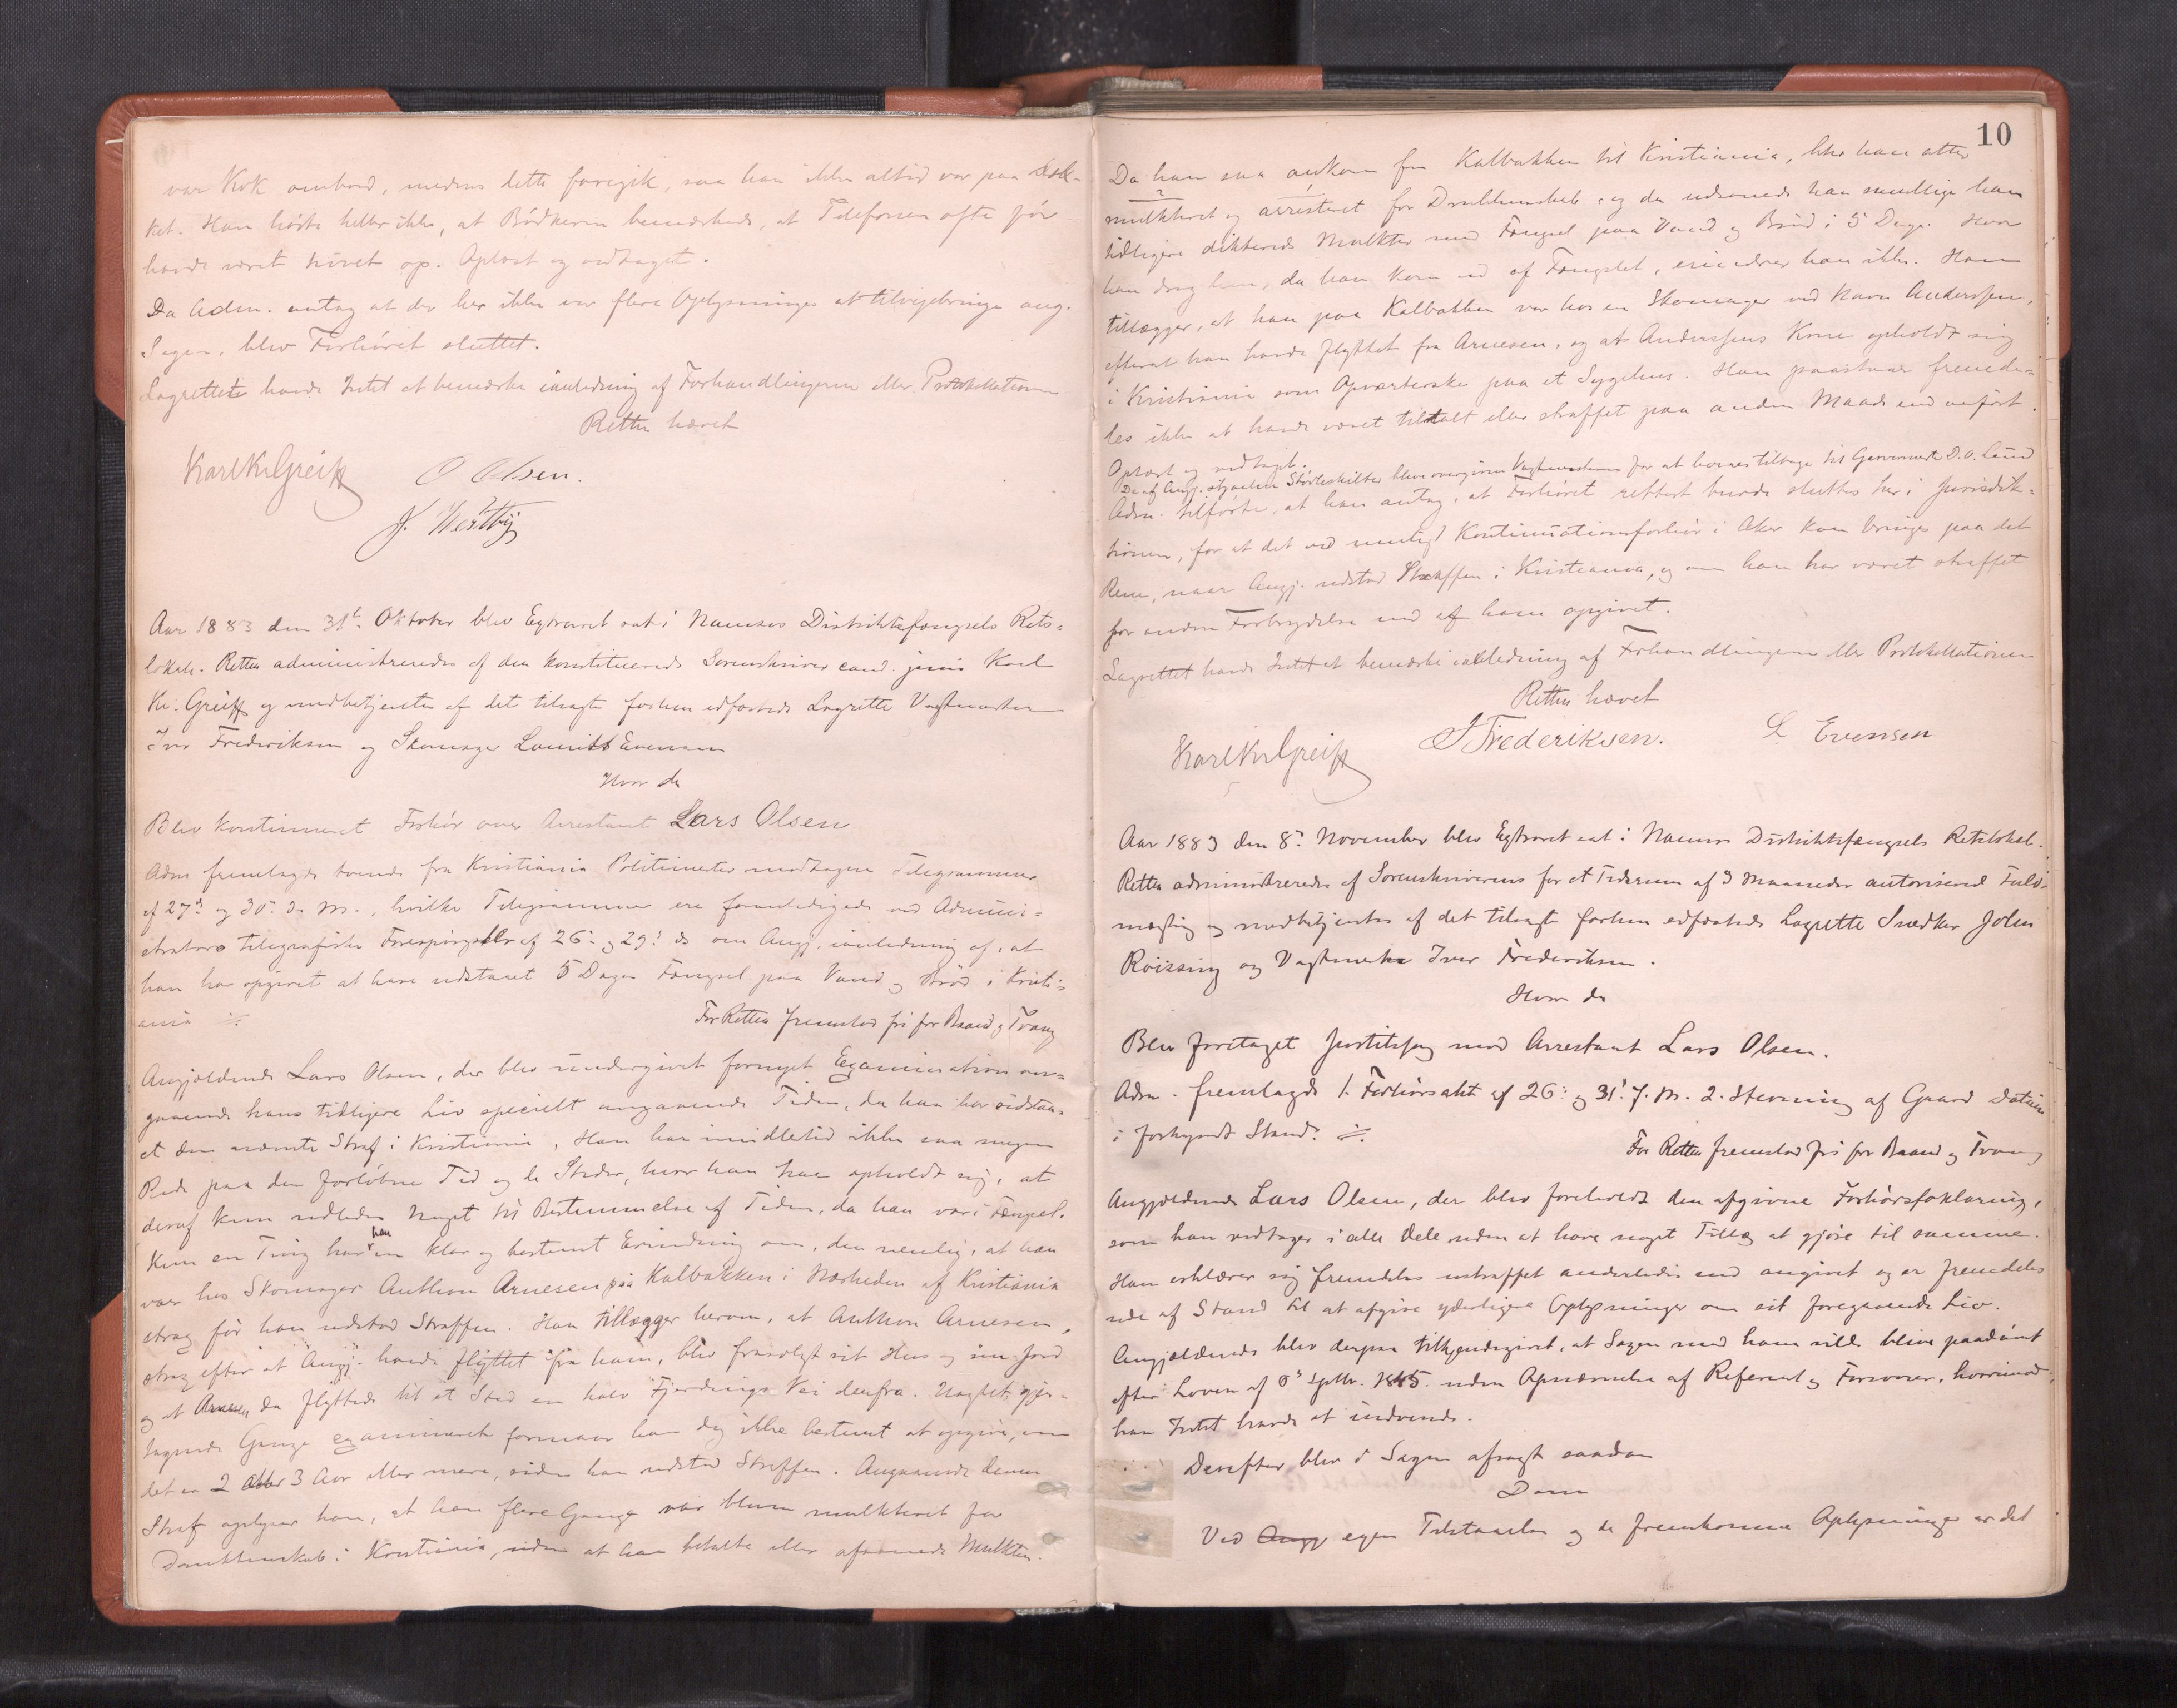 var Kok ombord, medens dette foregik, saa han ikke altid var paa Dæk-
ket. Han hørte heller ikke, at Bødkeren bemærkede, at Telefonen ofte før
havde været hivet op. Oplæst og vedtaget.
Da Adm. antog at der her ikke var flere Oplysninger at tilveiebringe ang.
Sagen, blev Forhøret sluttet.
Lagrettet havde Intet at bemærke i anledning af Forhandlingerne eller Protokollationen
Retten hævet
Karl Kr Greiff O Olsen.
J.
Aar 1883 den 31t. Oktober blev Extraret sat i Namsos Distriktsfængsels Rets-
lokale. Retten administreredes af den konstituerede Sorenskriver cand. juris Karl
Kr. Greiff og medbetjentes af det tilsagte forhen edfæstede Lagrette Vagtmester
Iver Frederiksen og Skomager Lauritz Evensen
Hvor da
Blev kontinueret Forhør over Arrestant Lars Olsen
Adm fremlagde tvende fra Kristiania Politimester modtagne Telegrammer
af 27de og 30. d. M., hvilke Telegrammer ere foranledigede ved Admini-
strators telegrafiske Forespørgsler af 26. og 29. ds om Angj. i anledning af, at
han har opgivet at have udstaaet 5 Dages Fængsel paa Vand og Brød i Kristi-
ania ./.
For Retten fremstod fri for Baand og Tvang
Angjældende Lars Olsen, der blev undergivet fornyet Examination an-
gaaende hans tidligere Liv specielt angaaende Tiden, da han har udstaa-
et den nævnte Straf i Kristiania. Han har imidlertid ikke saa megen
Rede paa den forløbne Tid og de Steder, hvor han har opholdt sig, at
deraf kan udledes Noget til Bestemmelse af Tiden, da han var i Fængsel.
Kun en Ting har han en klar og bestemt Erindring om, den nemlig, at han
var hos Skomager Anthon Arnesen paa Kalbakken i Nærheden af Kristiania
strax før han udstod Straffen. Han tillægger herom, at Anthon Arnesen,
strax efter at Angj. havde flyttet fra ham, blev frasolgt sit Hus og sin Jord
og at Arnesen da flyttede til et Sted en halv Fjerdings Vei derfra. Uagtet gjen-
tagende Gange examineret formaar han dog ikke bestemt at opgive, om
det er 2 eller 3 Aar eller mere, siden han udstod Straffen. Angaaende denne
Straf oplyser han, at han flere Gange var bleven mulkteret for
Drukkenskab i Kristiania, uden at han betalte eller afsonede Mulkten.
10
Da han saa ankom fra Kalbakken til Kristiania, blev han atter
mulkteret og arresteret for Drukkenskab, og da udsonede han samtlige ham
tidligere dikterede Mulkter med Fængsel paa Vand og Brød i 5 Dage. Hvor
han drog hen, da han kom ud af Fængslet, erindrer han ikke. Han
tillægger, at han paa Kalbakken var hos en Skomager ved Navn Anderssen,
efterat han havde flyttet fra Arnesen, og at Anderssens Kone opholdt sig
i Kristiania som Opvarterske paa et Sygehus. Han paastaar fremde-
les ikke at have været tiltalt eller straffet paa anden Maade end anført.
Oplæst og vedtaget.
De af Angj. stjaalne blev overgivne Vagtmesteren for at leveres tilbage til D. O. Lund
Adm. tilførte, at han antog, at Forhøret rettest burde sluttes her i Jurisdik-
tionen, for at det ved muligt Kontinuationsforhør i Aker kan bringes paa det
Rene, naar Angj. udstod Straffen i Kristiania, og om han har været straffet
for anden Forbrydelse end af ham opgivet.
Lagrettet havde Intet at bemærke i anledning af Forhandlingerne eller Protokollationen
Retten hævet
Karl Kr Greiff I Frederiksen. L Evensen
Aar 1883 den 8de November blev Extraret sat i Namsos Distriktsfængsels Retslokal.
Retten administreredes af Sorenskriverens for et Tidsrum af 3 Maaneder autoriserede Fuld-
mægtig og medbetjentes af det tilsagte forhen edfæstede Lagrette Snedker John
Røissing og Vagtmester Iver Frederiksen.
Hvor da
Blev foretaget Justitssag mod Arrestant Lars Olsen.
Adm. fremlagde 1. Forhørsakt af 26. og 31. f. M. 2. Stevning af Gaards Datum
i forkyndt Stand. ./.
For Retten fremstod fri for Baand og Tvang
Angjældende Lars Olsen, der blev foreholdt den afgivne Forhørsforklaring,
som han vedtager i alle Dele uden at have noget Tillæg at gjøre til samme.
Han erklærer sig fremdeles ustraffet anderledes end angivet og er fremdeles
ude af Stand til at afgive yderligere Oplysninger om sit foregaaende Liv.
Angjældende blev derpaa tilkjendegivet, at Sagen mod ham vilde blive paadømt
efter Loven af 6te Septbr. 1845 uden Opnævnelse af Referent og Forsvarer, hvorimod
han Intet havde at indvende.
Derefter blev i Sagen afsagt saadan
Dom
Ved Angj egen Tilstaaelse og de fremkomne Oplysninger er det